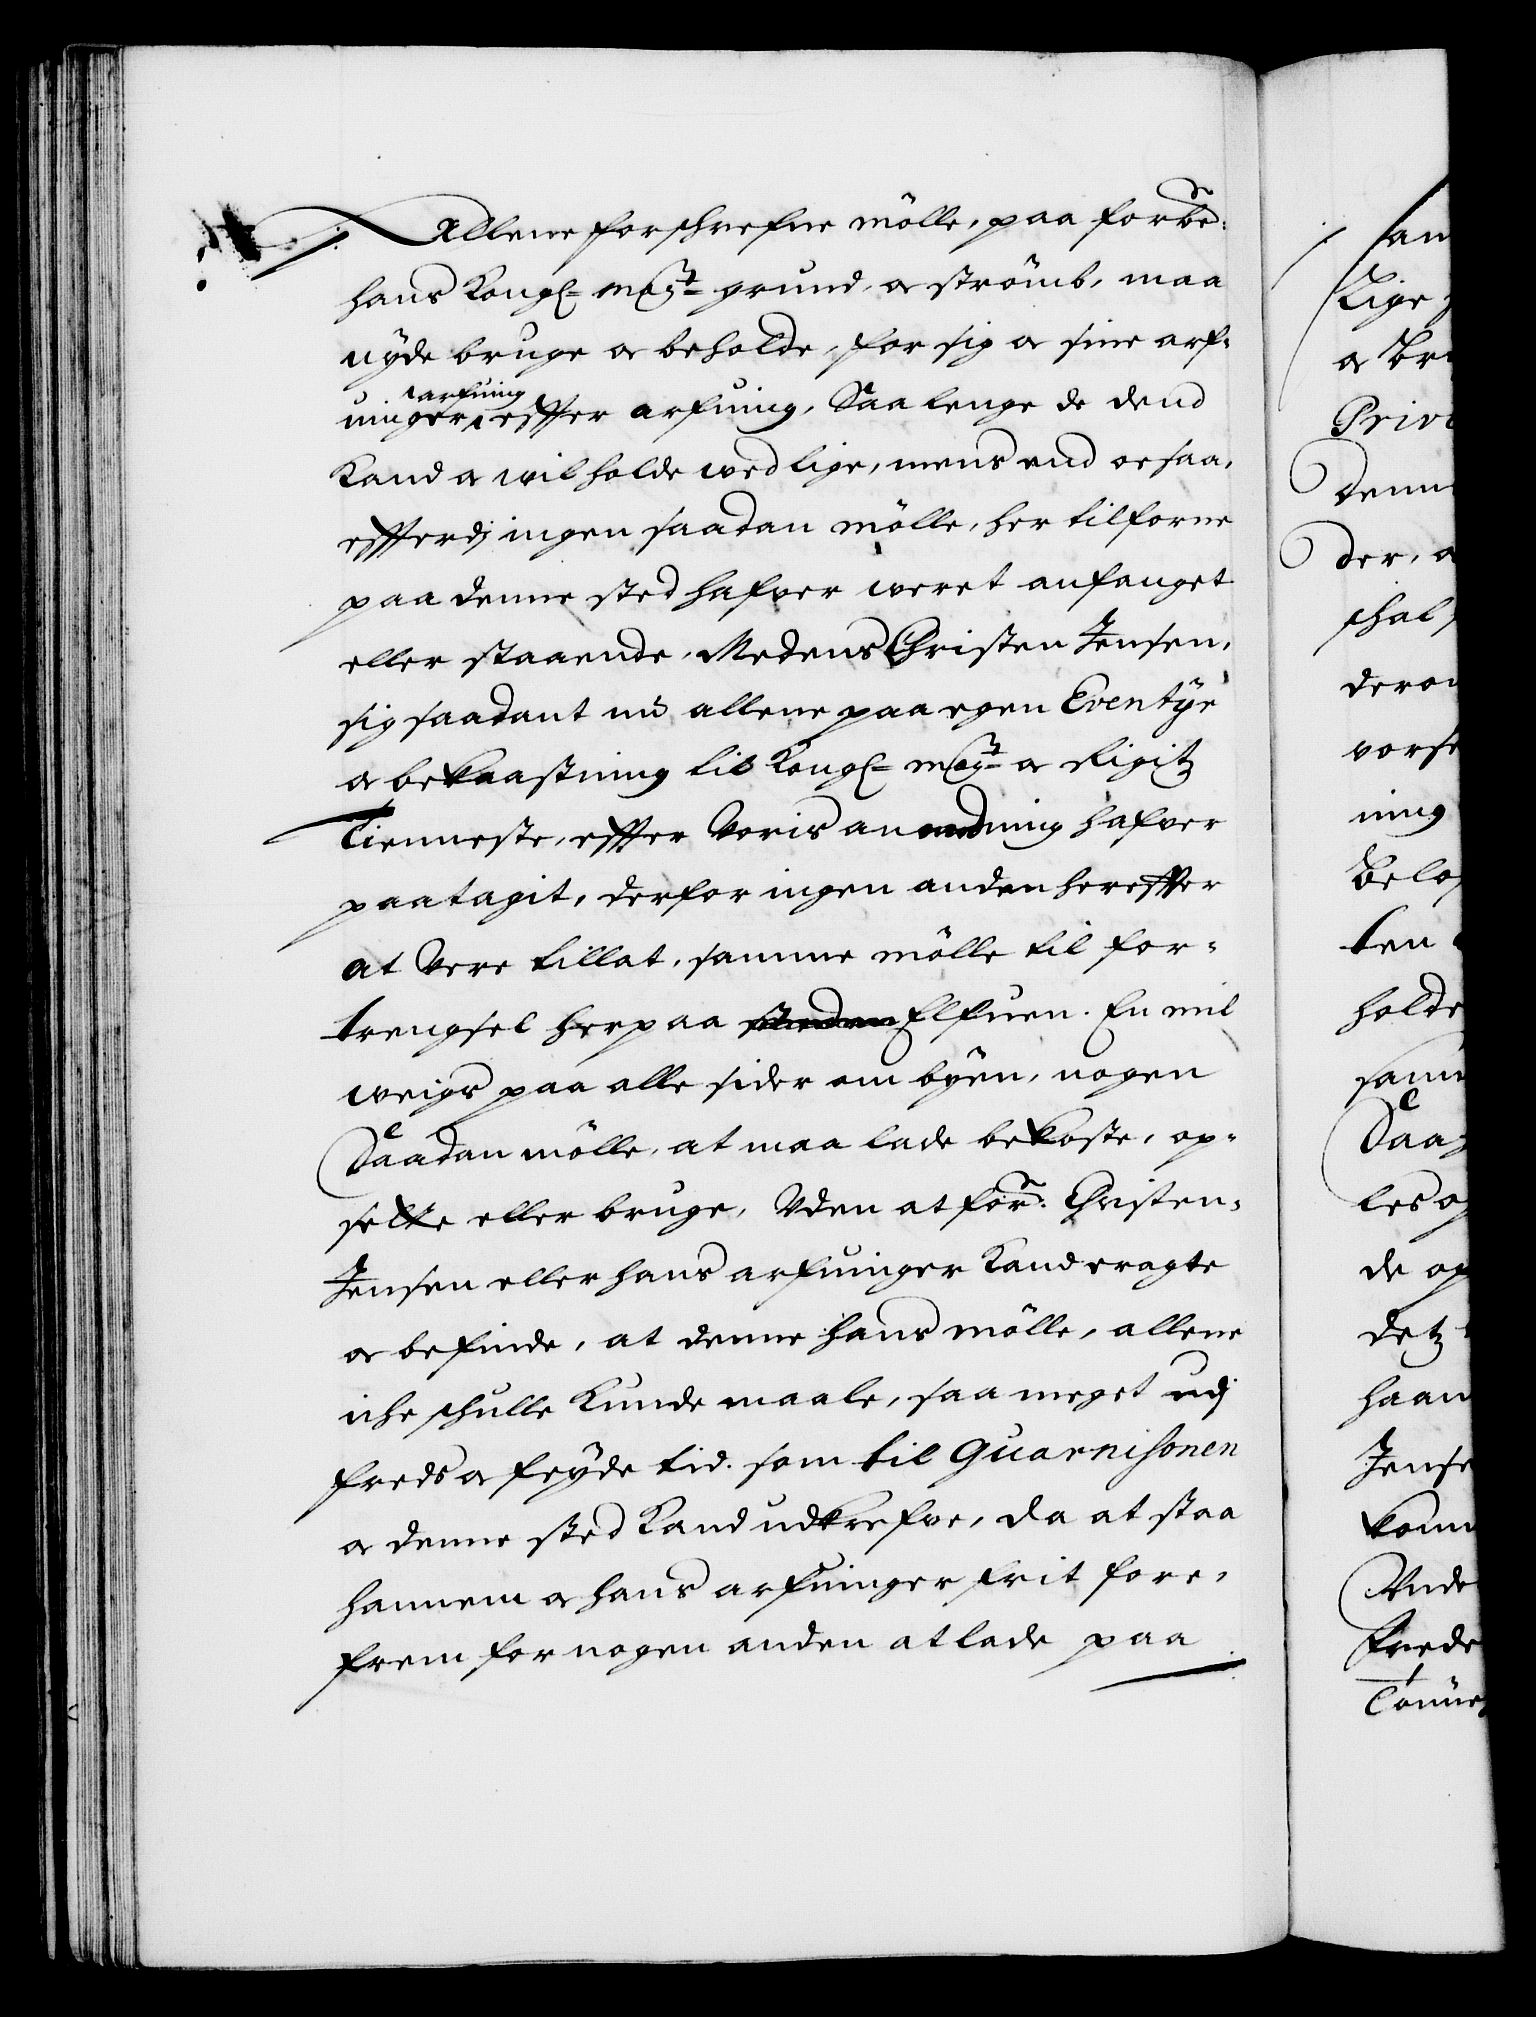 Allene forschrefne mölle, paa forbe:
hans Kongl: May:t grund, oc strömb, maa
nyde bruge oc beholde, for sig oc sine arf-
uinger, arfuing effter arfuing, Saa lenge de dend
Kand oc wil holde wed lige, mens end oc saa,
effterdj ingen saadan mölle, her tilforne
paa denne sted hafver weret anfanget
eller staaende, Medens Christen Jensen,
sig saadant nu allene paa egen Eventÿr
oc bekaastning til Kongl: May:t oc Rigitz
Tienneste, effter Voris anmodning hafver
paatagit, derfor ingen anden hereffter
at Vere tillat, samme mölle til for-
trengsel her paa Elfuen. En mil
weigs paa alle sider om byen, nogen
Saadan mölle, at maa lade bekoste, op-
sette eller bruge, Uden at for: Christen-
Jensen eller hans arfuinger Kand eragte
oc befinde, at denne hans mölle, allene
iche schulle Kunde maale, saa meget udj
freds oc feyde tid. som til Guarnisonen
oc denne sted Kand udkrefve, da at staa
hannem oc hans arfuinger frit fore,
frem for nogen anden at lade paa
san
Lige
oc br
Privi
denn
der, a
schal
vorse
ning
Belo
ten
holde
sam
Saa
les o
de op
detz
haan
Jense
komm
Unde
frede